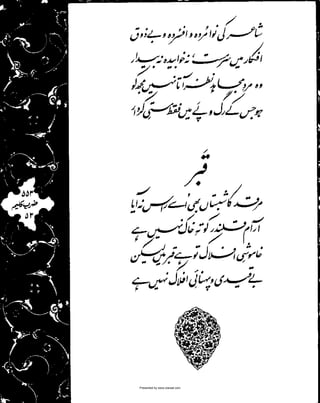 شاعر کی نوا مردہ و افسردہ و بے ذوق
افکار میں سرمست، نہ خوابیدہ نہ بیدار
وہ مردِ مجاہد نظر آتا نہیں مجھ کو
ہو جس کے رگ و پے میں فقط مستیِ کردار
قبر
مرقد کا شبستاں بھی اُسے راس نہ آیا
آرام قلندر کو تہِ خاک نہیں ہے
خاموشیِ افلاک تو ہے قبر میں لیکن
بے قیدی و پہنائیِ افلاک نہیں ہے
۵۵۳
ضربِ کلیم
۵۳
Presented by www.iqbalst.com